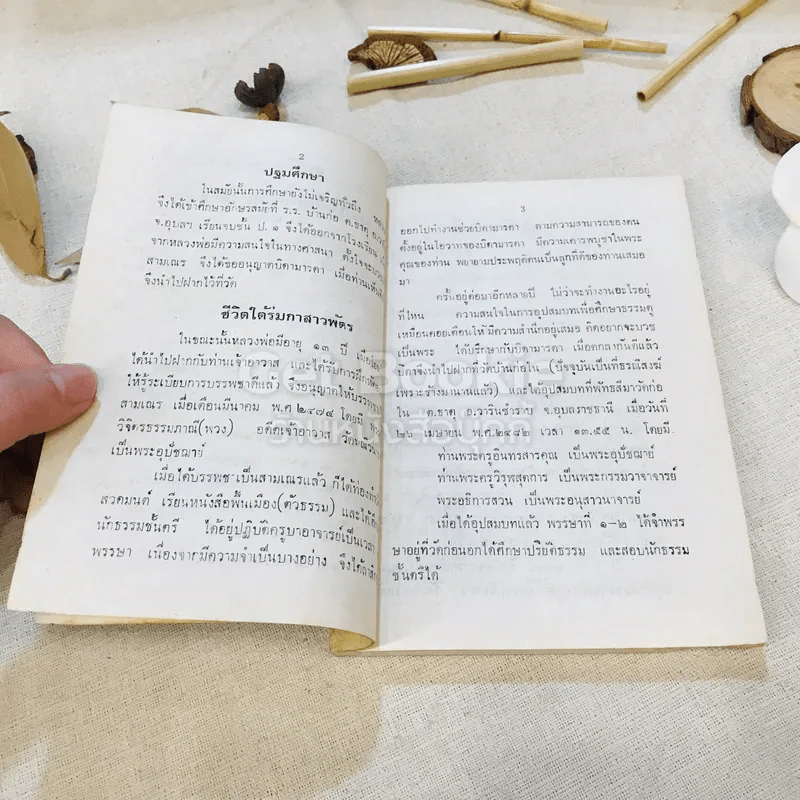 2
ปฐมศึกษา
ในสมัยนั้นการศึกษายังไม่เจริญทั่วถึง
จึงได้เข้าศึกษาอักษรสมัยที่ ร.ร. บ้านก่อ ต.ธาตุ อ.
จ.อุบลฯ เรียนจบชั้น ป. ๑ จึงได้ออกจากโรงเรียน
จากหลวงพ่อมีความสนใจในทางศาสนา ตั้งใจจะบวช
สามเณร จึงได้ขออนุญาตบิดามารดา เมื่อท่านเห็น
จึงนำไปฝากไว้ที่วัด
ชีวิตใต้ร่มกาสาวพัตร
ในขณะนั้นหลวงพ่อมีอายุ ๑๓ ปี
ได้นำไปฝากกับท่านเจ้าอาวาส และได้รับการฝึก
ให้รู้ระเบียบการบรรพชาดีแล้ว จึงอนุญาตให้บรรพ
สามเณร เมื่อเดือนมีนาคม พ.ศ ๒๔๗๔ โดยมี
วิจิตรธรรมภาณี(พวง) อดีตเจ้าอาวาส
เป็นพระอุปัชฌาย์
เมื่อได้บรรพชาเป็นสามเณรแล้ว ก็ได้ท่องทำ
สวดมนต์ เรียนหนังสือพื้นเมือง(ตัวธรรม) และได้
นักธรรมชั้นตรี ได้อยู่ปฏิบัติครูบาอาจารย์เป็นเวลา
พรรษา เนื่องจากมีความจำเป็นบางอย่าง จึงได้ลาสิก
3
ออกไปทำงานช่วยบิดามารดา ตามความสามารถของตน
ตั้งอยู่ในโอวาทของบิดามารดา มีความเคารพบูชาในพระ
คุณของท่าน พยายามประพฤติตนเป็นลูกที่ดีของท่านเสมอ
มา
ครั้นอยู่ต่อมาอีกหลายปี ไม่ว่าจะทำงานอะไรอยู่
ที่ไหน ความสนใจในการอุปสมบทเพื่อศึกษาธรรมดู
เหมือนคอยเตือนให้มีความสำนึกอยู่เสมอ คิดอยากจะบวช
เป็นพระ ได้ปรึกษากับบิดามารดา เมื่อตกลงกันดีแล้ว
บิดาจึงนำไปฝากที่วัดบ้านก่อใน (ปัจจุบันเป็นที่ธรณีสงฆ์
เพราะร้างมานานแล้ว) และได้อุปสมบทที่พัทธสีมาวัดก่อ
ใน ต.ธาตุ อ.วารินชำราบ จ.อุบลราชธานี เมื่อวันที่
๒๖ เมษายน พ.ศ.๒๔๘๒ เวลา ๑๓.๕๕ น. โดยมี.
ท่านพระครูอินทรสารคุณ เป็นพระอุปัชฌาย์
ท่านพระครูวิรุฬสุตการ เป็นพระกรรมวาจาจารย์
พระอธิการสวน เป็นพระอนุสาวนาจารย์
เมื่อได้อุปสมบทแล้ว พรรษาที่ ๑-๒ ได้จำพรร
ษาอยู่ที่วัดก่อนอกได้ศึกษาปริยัติธรรม และสอบนักธรรม
ชั้นตรีได้
Get Books
ร้านหนังสือเกท